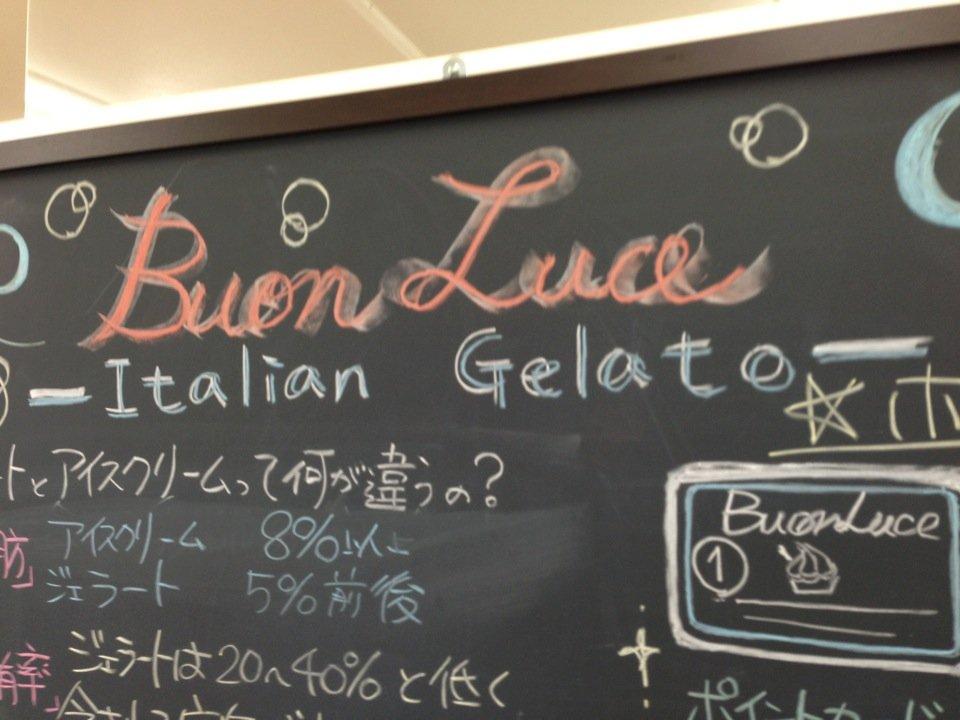 Buon Luce
Italian Gelato
トとアイスクリームって何が違うの?
肪」 アイスクリーム 8%以上
ジェラート 5%前後
ジェラートは20~40%と低く
☆ポ
Buon Luce
①
ポイントカード